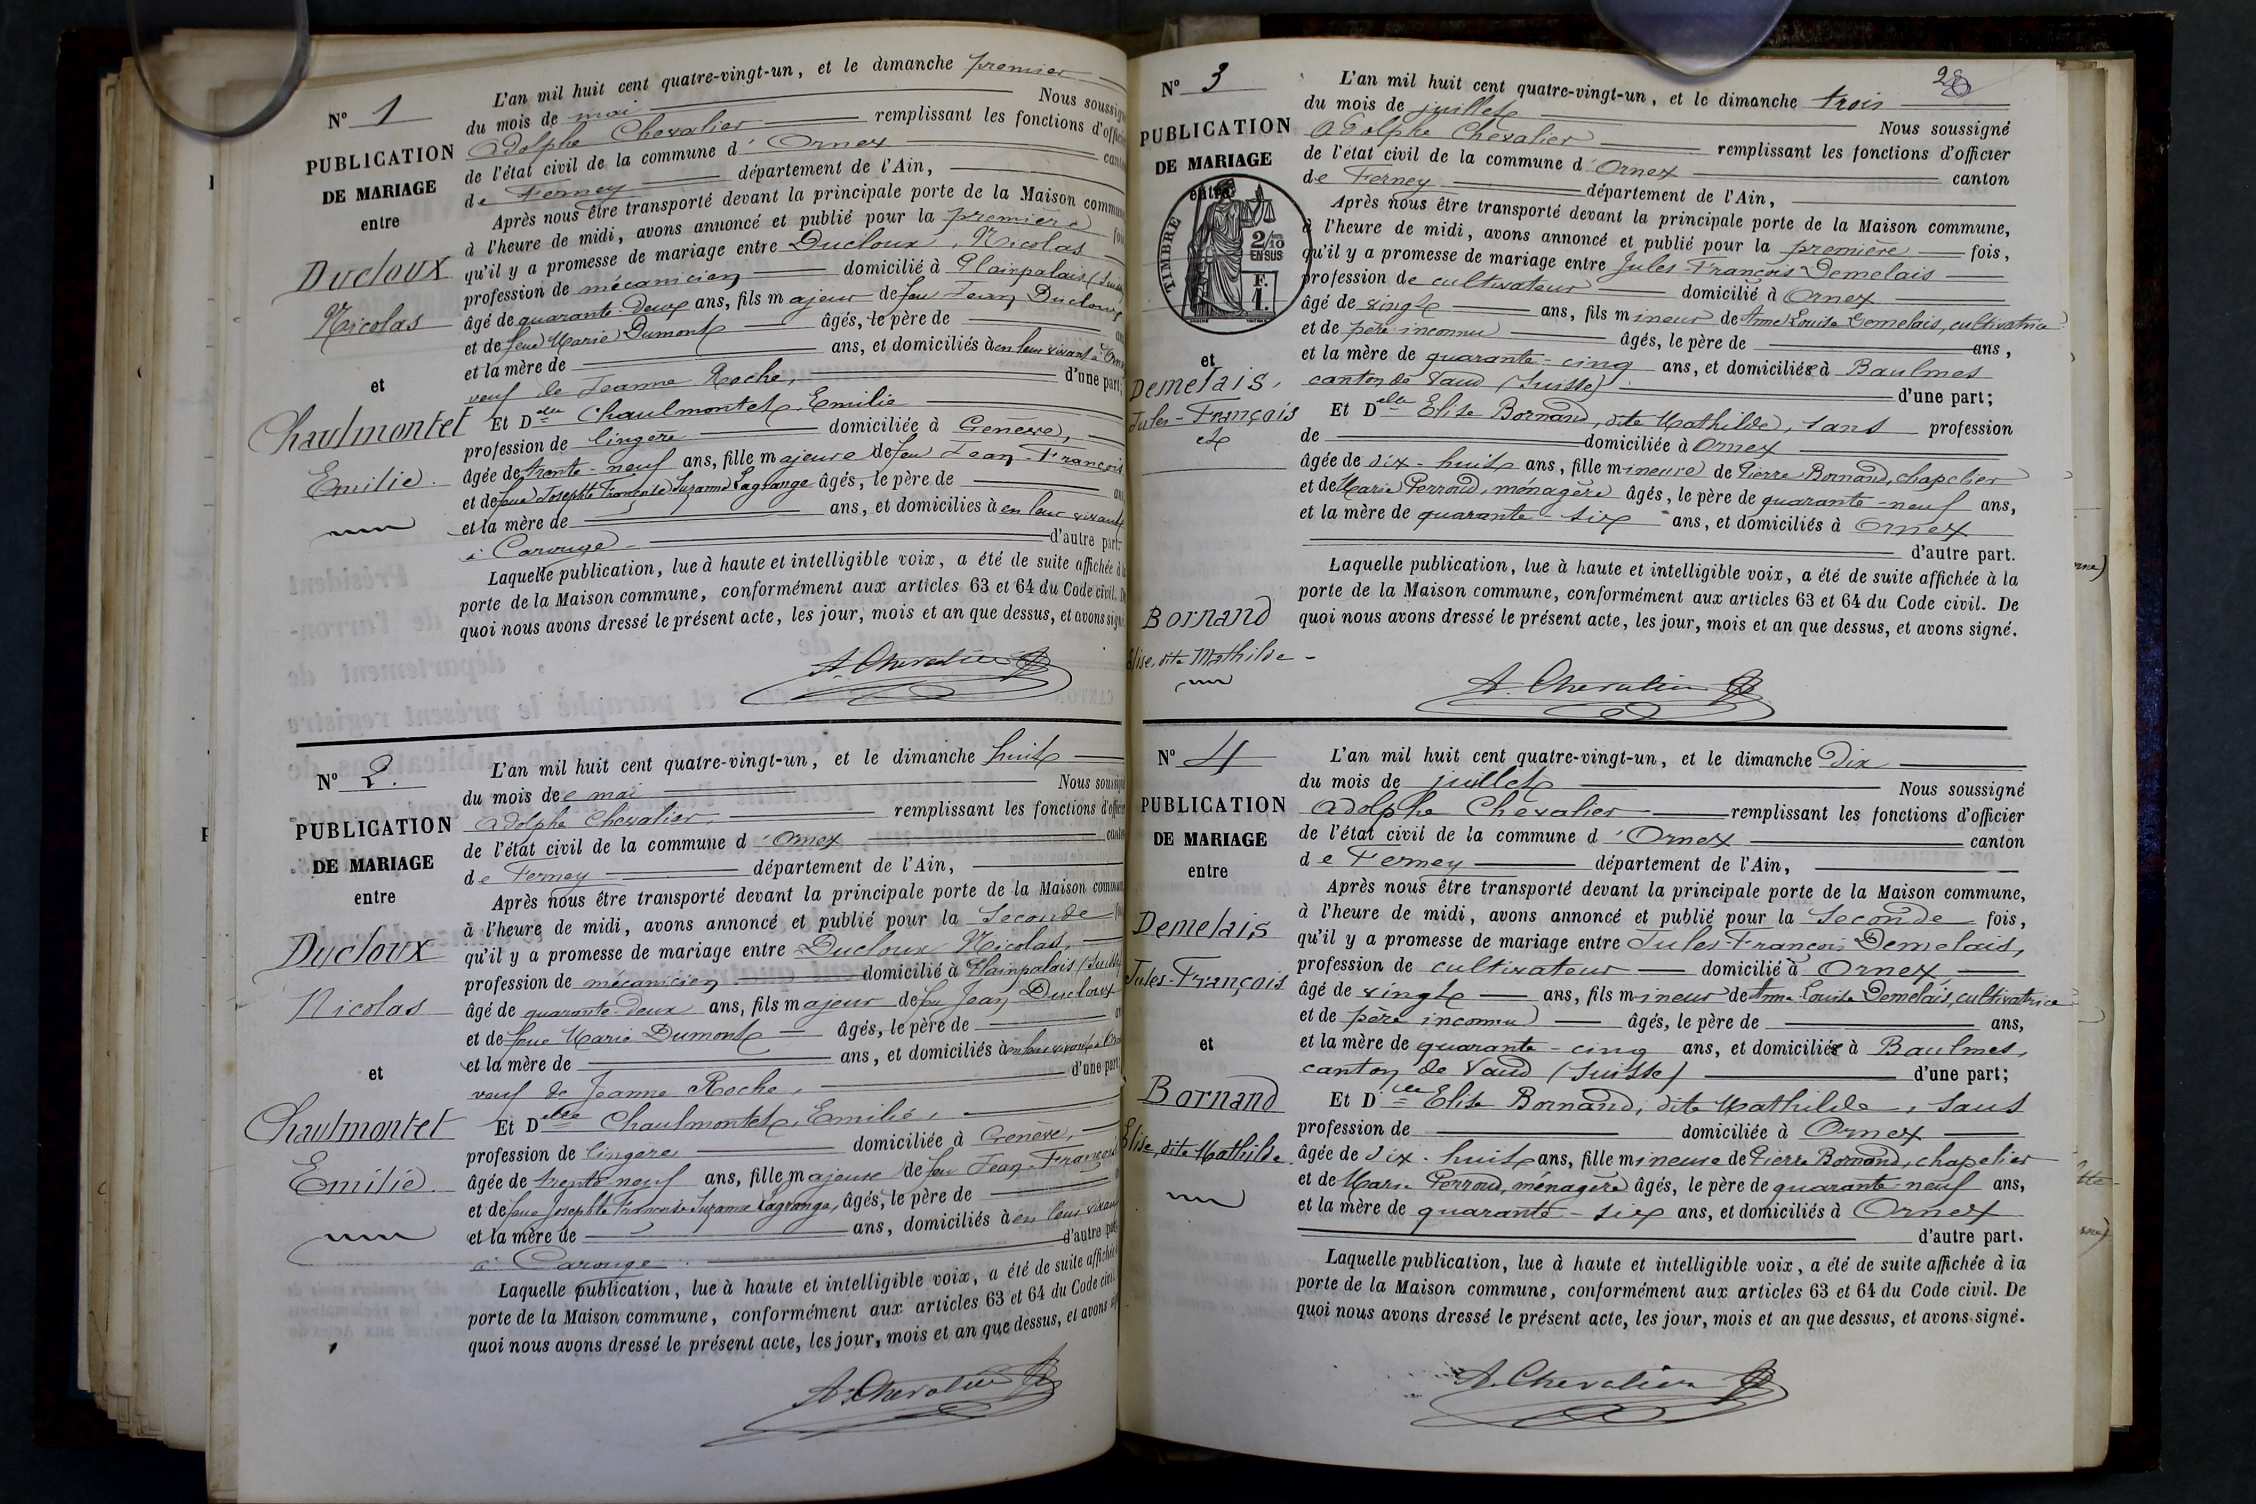 N° 1
PUBLICATION
DE MARIAGE
entre
Ducloux
Nicolas
et
Chaulmontet
Emilie
L'an mil huit cent quatre-vingt-un, et le dimanche premier
du mois de mai Nous soussigné
Adolphe Chevalier remplissant les fonctions d'officier
de l'état civil de la commune d'Ornex canton
de Ferney département de l'Ain,
Après nous être transporté devant la principale porte de la Maison commune
à l'heure de midi, avons annoncé et publié pour la première fois
qu'il y a promesse de mariage entre Ducloux, Nicolas
profession de mécanicien domicilié à Plainpalais (Suisse)
âgé de quarante-deux ans, fils majeur de feu Jean Ducloux
et de feue Marie Dumont âgés, le père de ans
et la mère de ans, et domiciliés à en leur vivant à
veuf de Jeanne Roche, d'une part;
Et Delle Chaulmontet, Emilie
profession de lingère domiciliée à Genève,
âgée de trente-neuf ans, fille majeure de feu Jean-François
et de feue Josephte Françoise Suzanne Lagrange âgés, le père de ans
et la mère de ans, et domiciliés à en leur vivant
à Carouge d'autre part.
Laquelle publication, lue à haute et intelligible voix, a été de suite affichée à la
porte de la Maison commune, conformément aux articles 63 et 64 du Code civil. De
quoi nous avons dressé le présent acte, les jour, mois et an que dessus, et avons signé
A. Chevalier
N° 2.
PUBLICATION
DE MARIAGE
entre
Ducloux
Nicolas
et
Chaulmontet
Emilie
L'an mil huit cent quatre-vingt-un, et le dimanche huit
du mois de mai Nous soussigné
Adolphe Chevalier, remplissant les fonctions d'officier
de l'état civil de la commune d'Ornex canton
de Ferney département de l'Ain,
Après nous être transporté devant la principale porte de la Maison commune
à l'heure de midi, avons annoncé et publié pour la seconde fois
qu'il y a promesse de mariage entre Ducloux Nicolas,
profession de mécanicien domicilié à Plainpalais (Suisse)
âgé de quarante-deux ans, fils majeur de feu Jean Ducloux
et de feue Marie Dumont âgés, le père de ans
et la mère de ans, et domiciliés à en leur vivant à
veuf de Jeanne Roche, d'une part
Et Delle Chaulmontet, Emilie,
profession de lingère domiciliée à Genève,
âgée de trente-neuf ans, fille majeure de feu Jean-François
et de feue Josephte Françoise Suzanne Lagrange, âgés, le père de
et la mère de ans, domiciliés à en leur vivant
à Carouge. d'autre part
Laquelle publication, lue à haute et intelligible voix, a été de suite affichée
porte de la Maison commune, conformément aux articles 63 et 64 du Code civil.
quoi nous avons dressé le présent acte, les jour, mois et an que dessus, et avons
A. Chevalier
28
N° 3
PUBLICATION
DE MARIAGE
entre
TIMBRE
2/10
EN SUS
F.
1.
et
Demelais,
Jules-François
et
Bornand
Elise, dite Mathilde
L'an mil huit cent quatre-vingt-un, et le dimanche trois
du mois de juillet Nous soussigné
Adolphe Chevalier remplissant les fonctions d'officier
de l'état civil de la commune d'Ornex canton
de Ferney département de l'Ain,
Après nous être transporté devant la principale porte de la Maison commune,
à l'heure de midi, avons annoncé et publié pour la première fois,
qu'il y a promesse de mariage entre Jules-François Demelais
profession de cultivateur domicilié à Ornex
âgé de vingt ans, fils mineur de Anne Louise Demelais, cultivatrice
et de père inconnu âgés, le père de ans,
et la mère de quarante-cinq ans, et domiciliée à Baulmes
canton de Vaud (Suisse) d'une part;
Et Delle Elise Bornand, dite Mathilde, sans profession
de domiciliée à Ornex
âgée de dix-huit ans, fille mineure de Pierre Bornand, chapelier
et de Marie Perroud, ménagère âgés, le père de quarante-neuf ans,
et la mère de quarante-six ans, et domiciliés à Ornex
d'autre part.
Laquelle publication, lue à haute et intelligible voix, a été de suite affichée à la
porte de la Maison commune, conformément aux articles 63 et 64 du Code civil. De
quoi nous avons dressé le présent acte, les jour, mois et an que dessus, et avons signé.
A. Chevalier
N° 4
PUBLICATION
DE MARIAGE
entre
Demelais
Jules-François
et
Bornand
Elise, dite Mathilde
L'an mil huit cent quatre-vingt-un, et le dimanche dix
du mois de juillet Nous soussigné
Adolphe Chevalier remplissant les fonctions d'officier
de l'état civil de la commune d'Ornex canton
de Ferney département de l'Ain,
Après nous être transporté devant la principale porte de la Maison commune,
à l'heure de midi, avons annoncé et publié pour la seconde fois,
qu'il y a promesse de mariage entre Jules-François Demelais,
profession de cultivateur domicilié à Ornex,
âgé de vingt ans, fils mineur de Anne Louise Demelais, cultivatrice
et de père inconnu âgés, le père de ans,
et la mère de quarante-cinq ans, et domiciliée à Baulmes,
canton de Vaud (Suisse) d'une part;
Et Delle Elise Bornand, dite Mathilde, sans
profession de domiciliée à Ornex
âgée de dix-huit ans, fille mineure de Pierre Bornand, chapelier
et de Marie Perroud, ménagère âgés, le père de quarante-neuf ans,
et la mère de quarante-six ans, et domiciliés à Ornex
d'autre part.
Laquelle publication, lue à haute et intelligible voix, a été de suite affichée à la
porte de la Maison commune, conformément aux articles 63 et 64 du Code civil. De
quoi nous avons dressé le présent acte, les jour, mois et an que dessus, et avons signé.
A. Chevalier